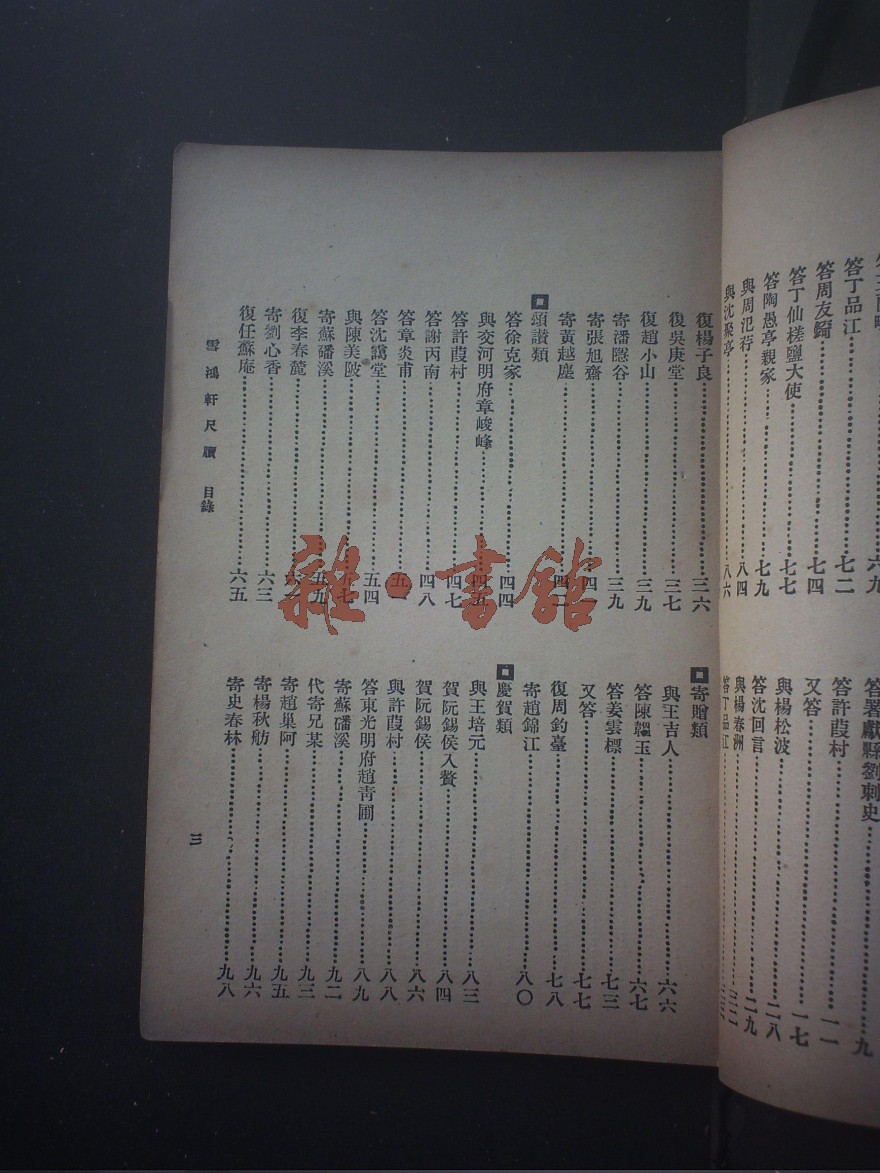 答丁品江……七二
答周友錡……七四
答丁仙槎鹽大使……七七
答陶愚亭親家……七九
與周氾荇……八四
與沈聚亭……八六
答署獻縣劉刺史……九
答許葭村……一一
又答……一七
與楊松波……二八
答沈回言……二九
與楊春洲……三二
答丁品江
復楊子良……三六
復吳庚堂……三七
復趙小山……三九
寄潘隱谷……三九
寄張旭齋……四一
寄黃越塵……四二
頌讚類
答徐克家……四四
與交河明府章峻峰……四五
答許葭村……四七
答謝丙南……四八
答章炎甫……五一
答沈講堂……五四
與陳美陂……五七
寄蘇磻溪……五九
復李春麓……六二
寄劉心香……六三
復任蘇庵……六五
寄贈類
與王吉人……六六
答陳韞玉……六七
答姜雲標……七三
又答……七七
復周鈞臺……七八
寄趙錦江……八〇
慶賀類
與王培元……八三
賀阮錫侯入贅……八四
賀阮錫侯……八六
與許葭村……八八
答東光明府趙青圃……八九
寄蘇磻溪……九二
代寄兄某……九三
寄趙巢阿……九五
寄楊秋舫……九六
寄史春林……九八
雪鴻軒尺牘 目錄
三
雜·書館